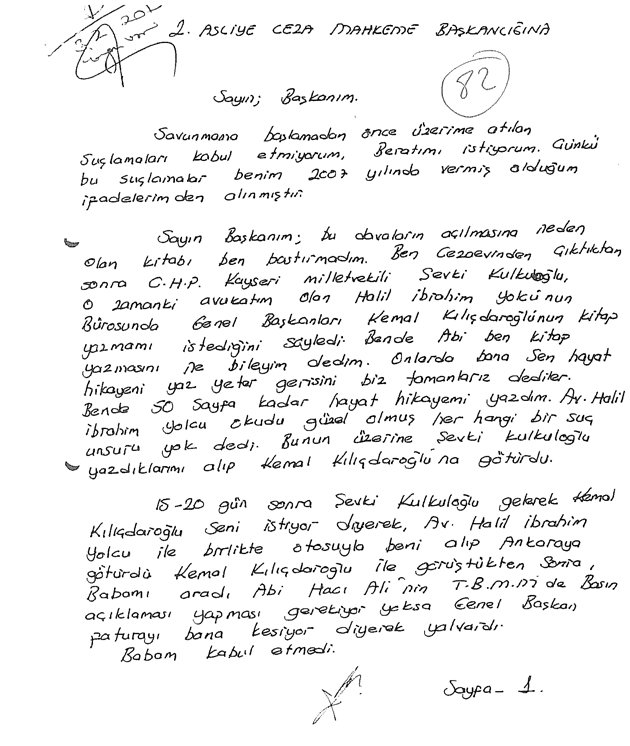 2. ASLİYE CEZA MAHKEME BAŞKANLIĞINA
82
Sayın; Başkanım.
Savunmama başlamadan önce üzerime atılan
Suçlamaları kabul etmiyorum, Beratımı istiyorum. Günkü
bu suçlamalar benim 2007 yılında vermiş olduğum
ipadelerimden alınmıştır.
Sayın Başkanım; bu davaların açılmasına neden
olan kitabı ben bastırmadım. Ben Cezaevinden Çıktıktan
sonra C.H.P. Kayseri milletvekili Şevki Kulkuloğlu,
O zamanki avukatım olan Halil ibrahim Yolcu'nun
Bürosunda Genel Başkanları Kemal Kılıçdaroğlu'nun kitap
yazmamı istediğini söyledi. Bende Abi ben kitap
yazmasını ne bileyim dedim. Onlarda bana Sen hayat
hikayeni yaz yeter gerisini biz tamamlarız dediler.
Bende 50 Sayfa kadar hayat hikayemi yazdım. Av. Halil
ibrahim Yolcu okudu güzel olmuş her hangi bir suç
unsuru yok dedi. Bunun üzerine Şevki kulkuloğlu
yazdıklarımı alıp Kemal Kılıçdaroğlu'na götürdü.
15-20 gün sonra Şevki Kulkuloğlu gelerek Kemal
Kılıçdaroğlu Seni istiyor diyerek, Av. Halil ibrahim
Yolcu ile birlikte otosuyla beni alıp Ankaraya
götürdü Kemal Kılıçdaroğlu ile görüştükten Sonra,
Babamı aradı Abi Hacı Ali'nin T.B.M.M'de Basın
açıklaması yapması gerekiyor yoksa Genel Başkan
paturayı bana kesiyor diyerek yalvardı.
Babam kabul etmedi.
Sayfa - 1.